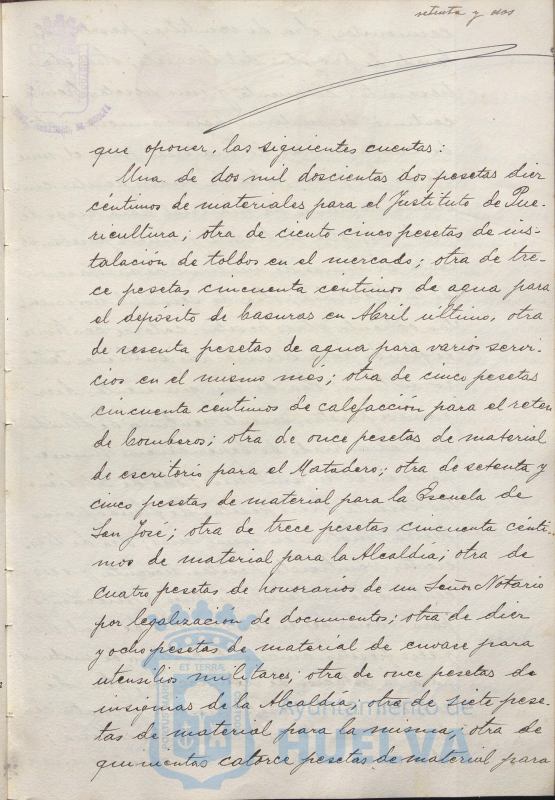 setenta y dos
que oponer, las siguientes cuentas:
Una de dos mil doscientas dos pesetas diez
céntimos de materiales para el Instituto de Pue-
ricultura; otra de ciento cinco pesetas de ins-
talación de toldos en el mercado; otra de tre-
ce pesetas cincuenta centimos de agua para
el depósito de basuras en Abril último, otra
de sesenta pesetas de agua para varios servi-
cios en el mismo més; otra de cinco pesetas
cincuenta céntimos de calefacción para el reten
de bomberos; otra de once pesetas de material
de escritorio para el Matadero; otra de setenta y
cinco pesetas de material para la Escuela de
San José; otra de trece pesetas cincuenta cénti-
mos de material para la Alcaldia; otra de
cuatro pesetas de honorarios de un Señor Notario
por legalización de documentos; otra de diez
y ocho pesetas de material de envase para
utensilios militares; otra de once pesetas de
insignias de la Alcaldía; otra de siete pese-
tas de material para la misma; otra de
quinientas catorce pesetas de material para
ET TERRAE
Ayuntamiento de
HUELVA